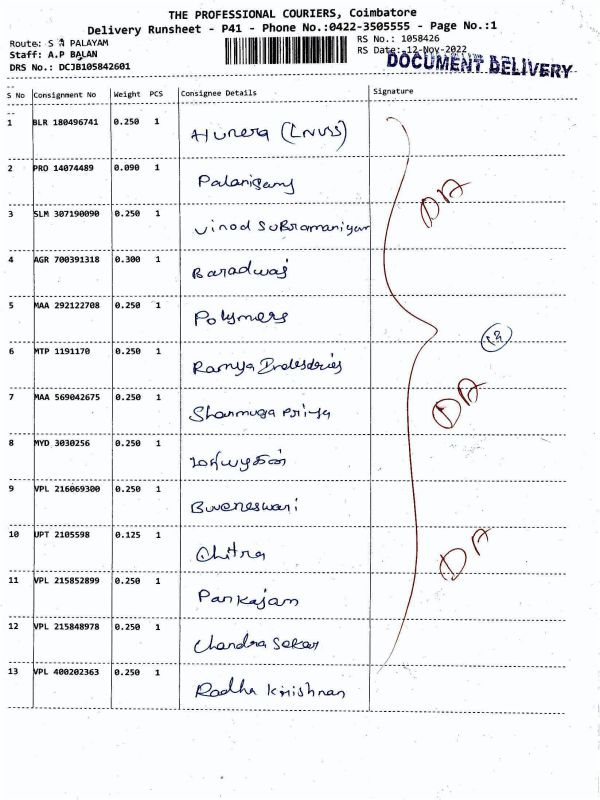 THE PROFESSIONAL COURIERS, Coimbatore
Delivery Runsheet - P41 - Phone No.:0422-3505555 - Page No.:1
Route: S A PALAYAM
RS No.: 1058426
Staff: A.P BALAN
RS Date: 12-Nov-2022
DRS No.: DCJB105842601
DOCUMENT DELIVERY
S No Consignment No Weight PCS Consignee Details Signature
1 BLR 180496741 0.250 1 Hunera
2 PRO 14074489 0.090 1 Palanigamy
3 SLM 307190090 0.250 1 Vinod SuBramaniyam
4 AGR 700391318 0.300 1 Baradwaj
DA
5 MAA 292122708 0.250 1 Polymers
6 MTP 1191170 0.250 1 Ramya
7 MAA 569042675 0.250 1 Shanmuga Priya
DA
8 MYD 3030256 0.250 1
9 VPL 216069300 0.250 1 Buveneswari
10 UPT 2105598 0.125 1 Chitra
DA
11 VPL 215852899 0.250 1 Pankajam
12 VPL 215848978 0.250 1 Chandra Sekar
13 VPL 400202363 0.250 1 Radha Krishnan